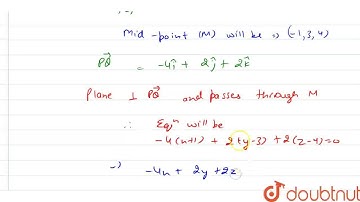 Mid-point (M) will be ⇒ (-1, 3, 4)
PQ⃗ = -4î + 2ĵ + 2k̂
Plane ⊥ PQ⃗ and passes through M
∴ Eqⁿ will be
-4(x+1) + 2(y-3) + 2(z-4)=0
-4x + 2y + 2z
doubtnut